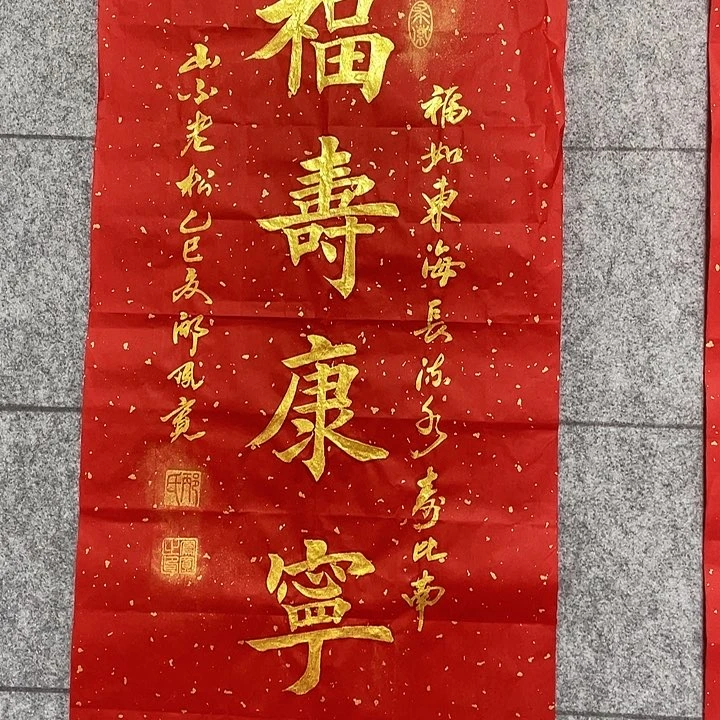 福如東海長流水壽比南
福壽康寧
山不老松乙巳夏邴鳳寬